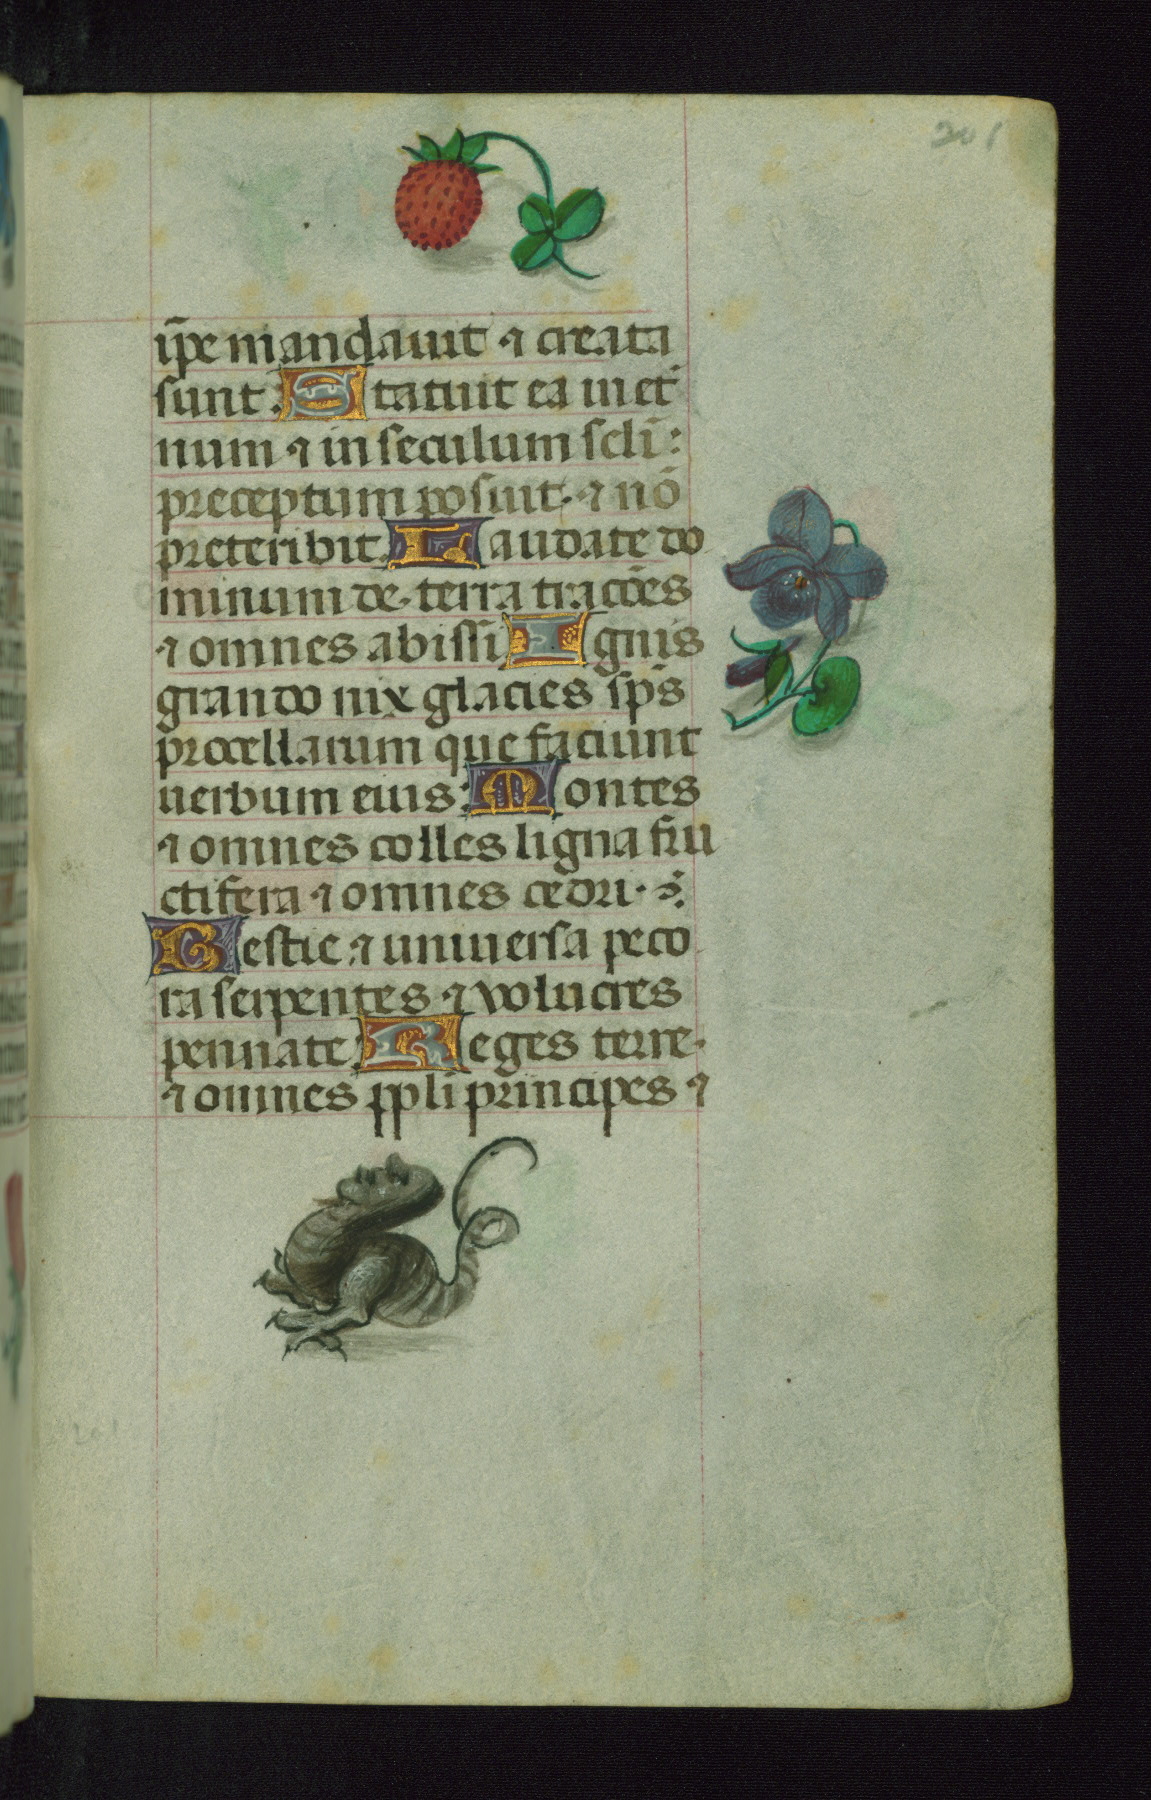 201
ip̄e mandauit ⁊ creata
sunt. Statuit ea in et᷑
num ⁊ in seculum scl̄i:
preceptum posuit. ⁊ nō
preteribit. Laudate do
minum de terra tracōēs
⁊ omnes abissi Ignis
grando nix glacies sp̄s
procellarum que faciunt
uerbum eius: Montes
⁊ omnes colles ligna fru
ctifera ⁊ omnes cedri.
Bestie ⁊ uniuersa peco
ra serpentes ⁊ volucres
pennate: Reges terre
⁊ omnes ppli principes ⁊